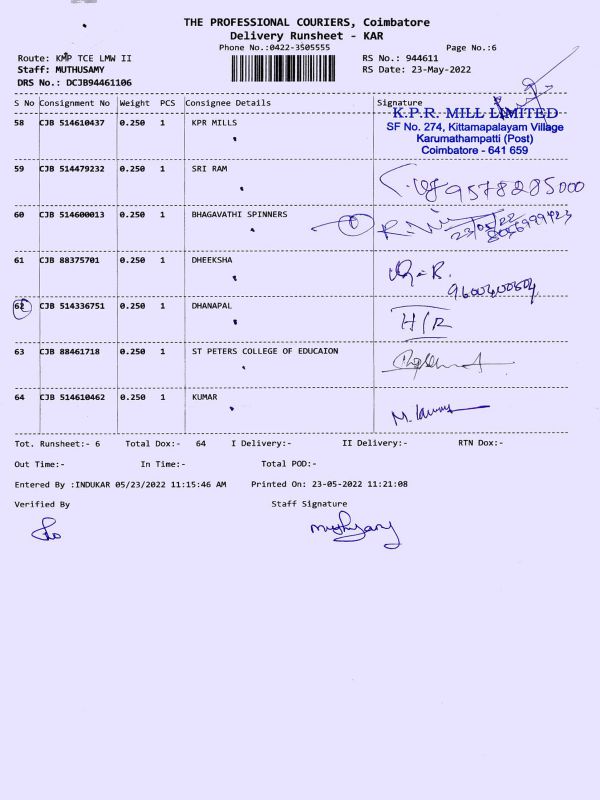 THE PROFESSIONAL COURIERS, Coimbatore
Delivery Runsheet - KAR
Phone No.:0422-3505555
Page No.:6
Route: KMP TCE LMW II
RS No.: 944611
Staff: MUTHUSAMY
RS Date: 23-May-2022
DRS No.: DCJB94461106
S No Consignment No Weight PCS Consignee Details Signature
58 CJB 514610437 0.250 1 KPR MILLS
K.P.R. MILL LIMITED
SF No. 274, Kittamapalayam Village
Karumathampatti (Post)
Coimbatore - 641 659
59 CJB 514479232 0.250 1 SRI RAM 9578285000
60 CJB 514600013 0.250 1 BHAGAVATHI SPINNERS
23/05/22
61 CJB 88375701 0.250 1 DHEEKSHA
62 CJB 514336751 0.250 1 DHANAPAL H/R
63 CJB 88461718 0.250 1 ST PETERS COLLEGE OF EDUCAION
64 CJB 514610462 0.250 1 KUMAR
Tot. Runsheet:- 6 Total Dox:- 64 I Delivery:- II Delivery:- RTN Dox:-
Out Time:- In Time:- Total POD:-
Entered By :INDUKAR 05/23/2022 11:15:46 AM Printed On: 23-05-2022 11:21:08
Verified By Staff Signature